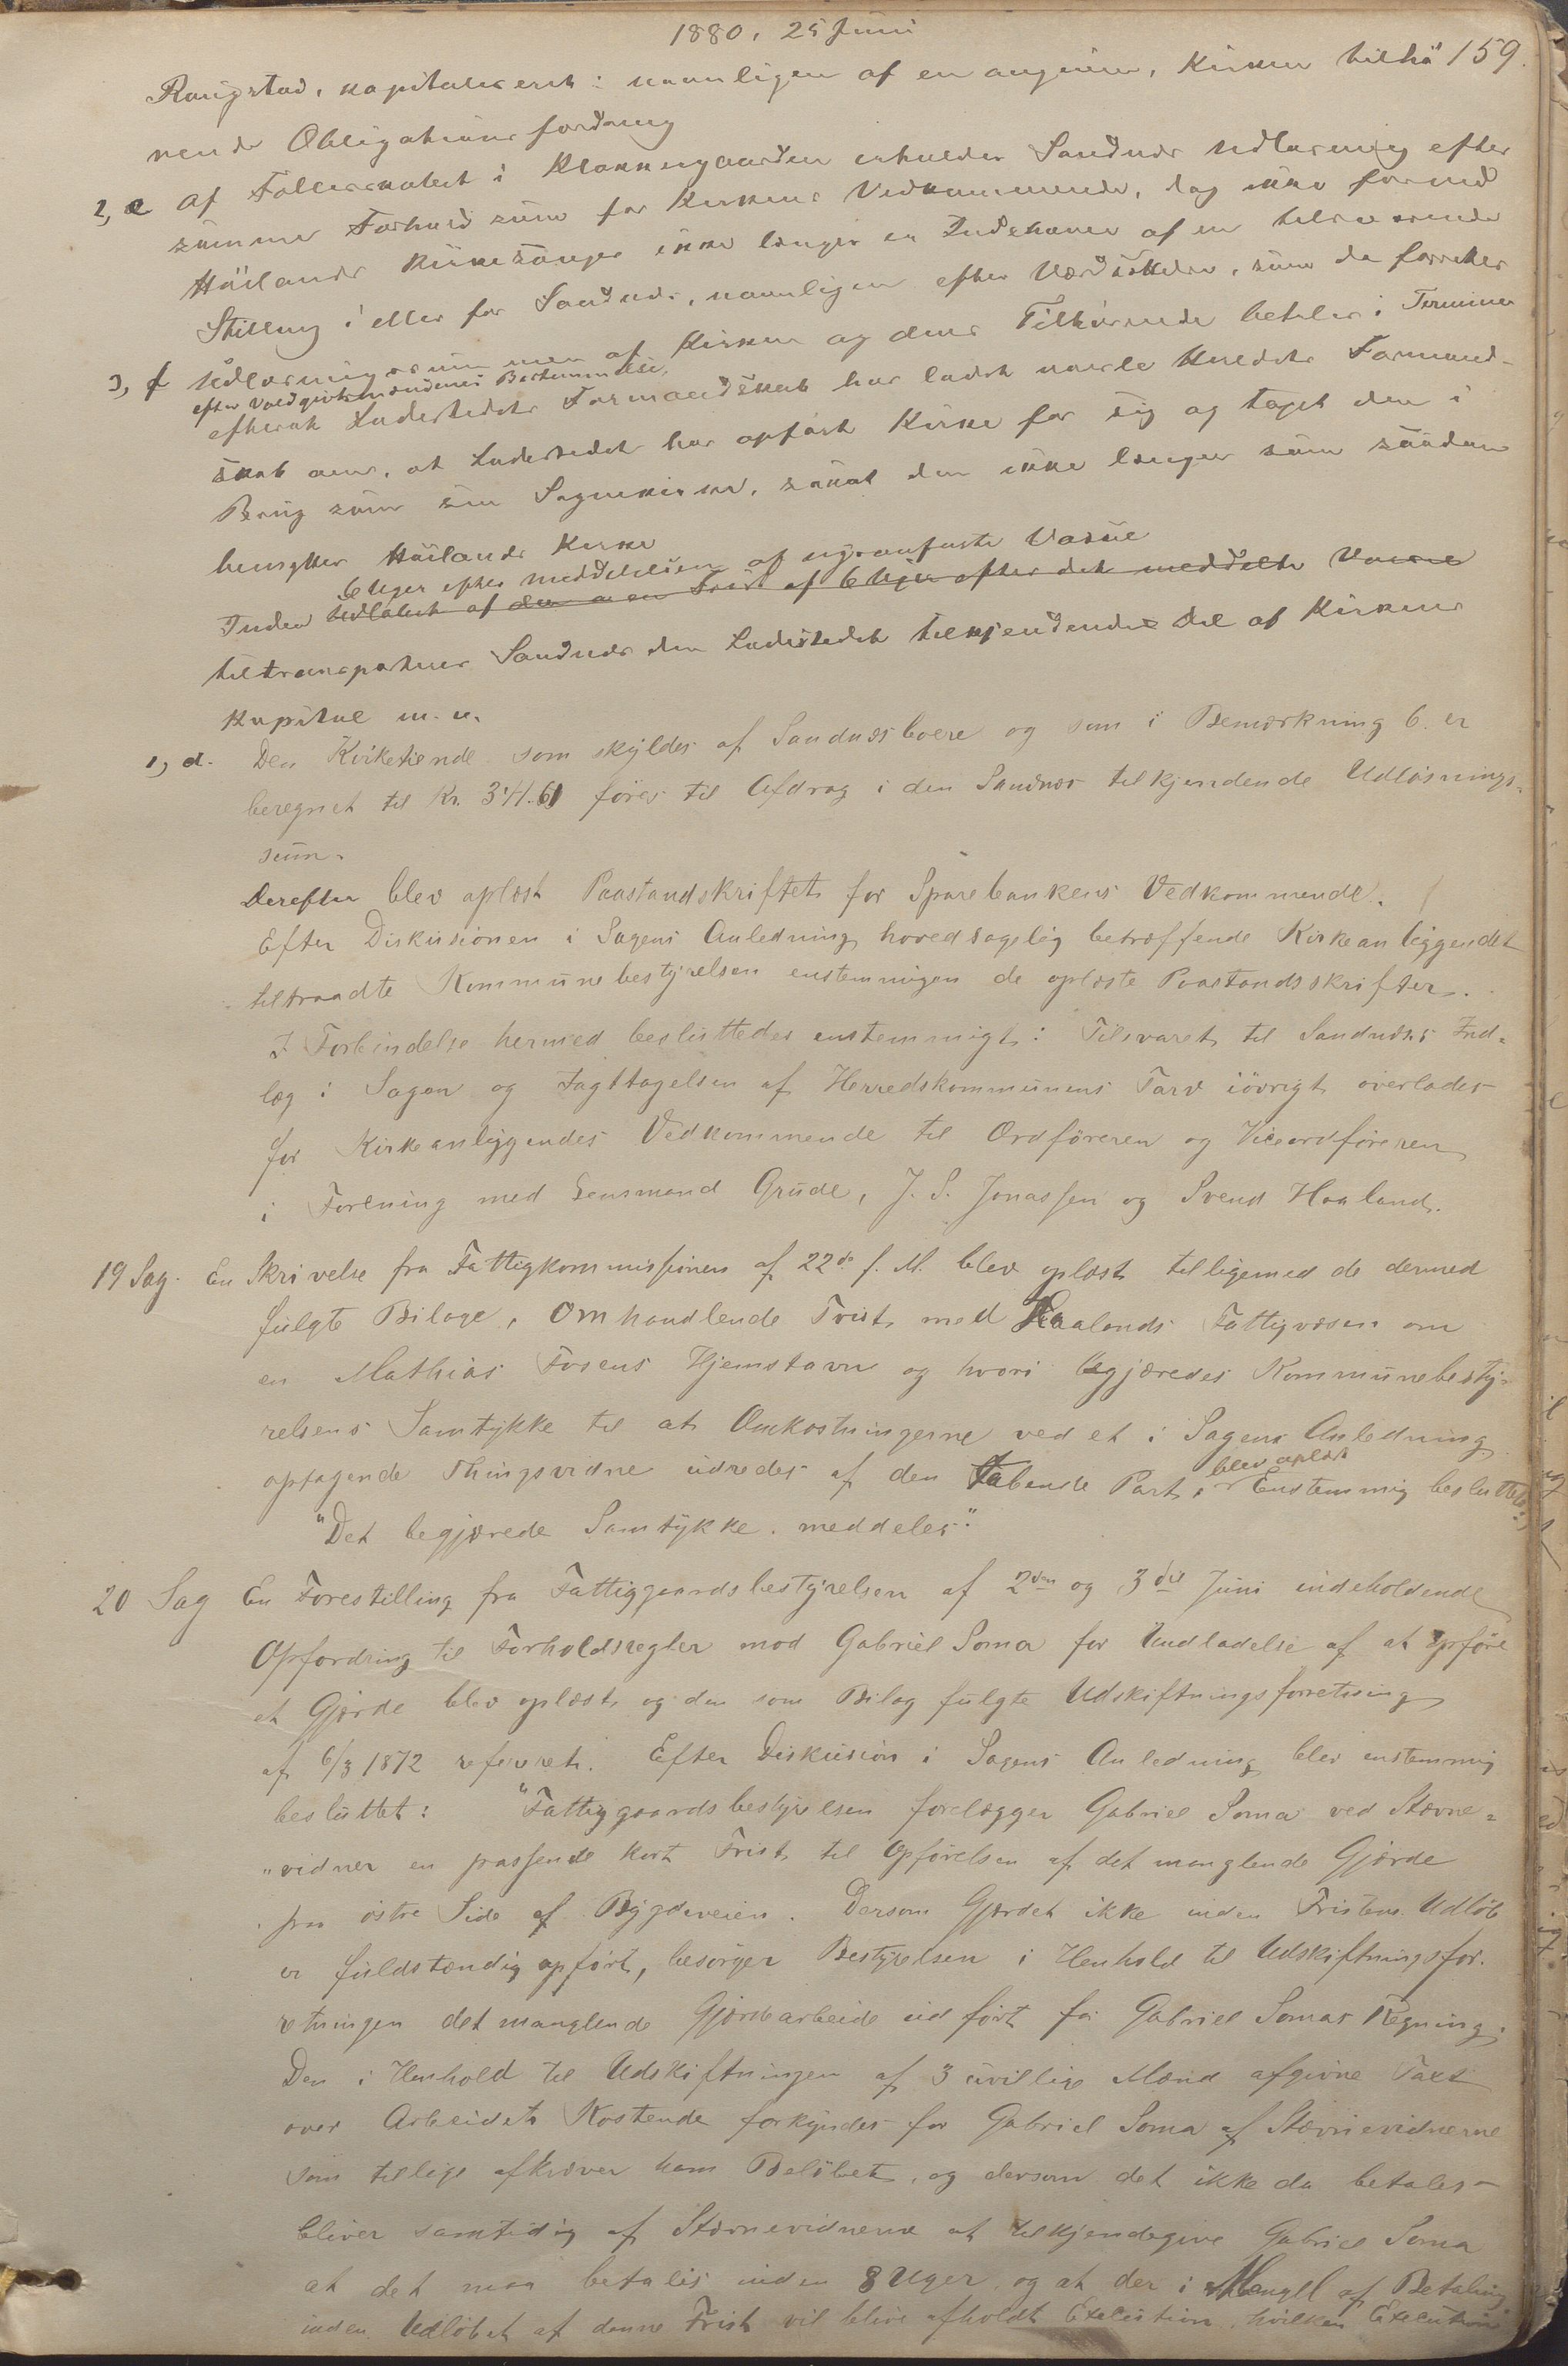 1880, 25 Juni
159.
Raugstad, kapitaliseret: navnligen af en angiven, Kirken tilhö-
rende Obligationsfordring
2, e Af Fællesskabet i Klokkergaarden erholder Sandnæs Udlösning efter
samme Forhold som for Kirkens Vedkommende, dog ikke forend
Höilands Kirkesanger ikke længer er Indehaver af en tilsvarende
Stilling i eller for Sandnæs, navnligen efter Værdien, som da forrettes
3, f Udlösningssummen af Kirken og dens Tilhörende betales i Terminer
efter Voldgiftsmændenes Bestemmelse,
efterat Ladestedets Formandskab har ladet varsle Herredets Formand-
skab om, at Ladestedet har opfört Kirke for sig og taget den i
Brug som sin Sognekirke, saaat den ikke længer som saadan
benytter Höilands Kirke
6 Uger efter Meddelelsen af nysanførte Varsel
Inden Udløbet af den en Frist af 6 Uger efter det meddelte Varsel
tiltransporteres Sandnæs den Ladestedet tilkjendende Del af Kirkens
Kapital m. v.
1, d. Den Kirketiende som skyldes af Sandnæsboere og som i Bemærkning 6. er
beregnet til Kr. 341.61 föres til Afdrag i den Sandnæs tilkjendende Udlösnings-
sum.
Derefter blev oplæst Paastandskriftet for Sparebankens Vedkommende.
Efter Diskusionen i Sagens Anledning hovedsagelig betræffende Kirkeanliggendet
tiltraadte Kommunebestyrelsen enstemmigen de oplæste Paastandsskrifter.
I Forbindelse hermed besluttedes enstemmigt: Tilsvaret til Sandnæs Ind-
læg i Sagen og Iagttagelsen af Herredskommunens Tarv iövrigt overlades
for Kirkeanliggendes Vedkommende til Ordföreren og Viceordföreren
i Forening med Lensmand Grude, J. S. Jonassen og Svend Haaland.
19 Sag. En Skrivelse fra Fattigkommissionen af 22de f. M. blev oplæst tilligemed de dermed
fulgte Bilage, Omhandlende Tvist med Haalands Fattigvæsen om
en Mathias Fosens Hjemstavn og hvori begjæredes Kommunebesty-
relsens Samtykke til at Omkostningerne ved et i Sagens Anledning
optagende Thingsvidne udredes af den tabende Part, blev oplæst Enstemmig besluttet:
"Det begjærede Samtykke meddeles."
20 Sag En Forestilling fra Fattiggaardsbestyrelsen af 2den og 3die Juni indeholdende
Opfordring til Forholdsregler mod Gabriel Soma for Undladelse af at opföre
et Gjærde blev oplæst, og den som Bilag fulgte Udskiftningsforretning
af 6/3 1872 refereret. Efter Diskusion i Sagens Anledning blev enstemmig
besluttet: "Fattiggaardsbestyrelsen forelægger Gabriel Soma ved Stævne-
"vidner en passende kort Frist til Opförelsen af det manglende Gjærde
paa östre Side af Bygdeveien. Dersom Gjærdet ikke inden Fristens Udlöb
er fuldstændig opfört, besörger Bestyrelsen i Henhold til Udskiftningsfor-
retningen det manglende Gjærdearbeide udfört for Gabriel Somas Regning.
Den i Henhold til Udskiftningen af 3 uvillige Mænd afgivne Taxt
over Arbeidets Kostende forkyndes for Gabriel Soma af Stævnevidnerne
som tillige afkræver ham Belöbet, og dersom det ikke da betales
bliver samtidig af Stævnevidnerne at tilkjendegive Gabriel Soma
at det maa betales inden 8 Uger og at der i Mangel af Betaling
inden Udlöbet af denne Frist vil blive afholdt Execution, hvilken Execution